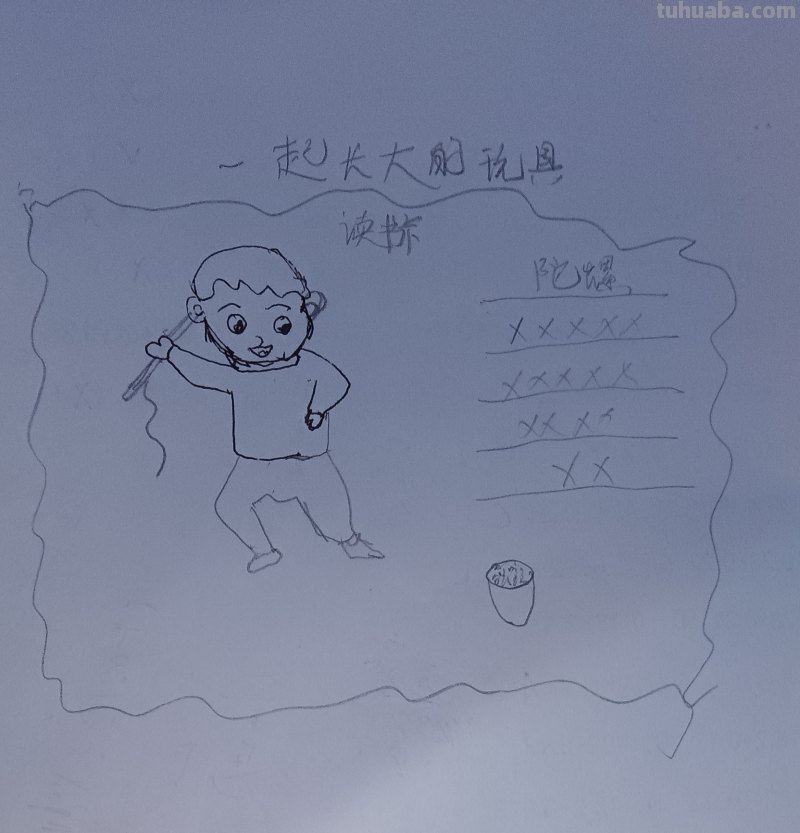 tuhuaba.com
一起长大的玩具
读书
陀螺
XXXXX
XXXXX
XXXX
XX